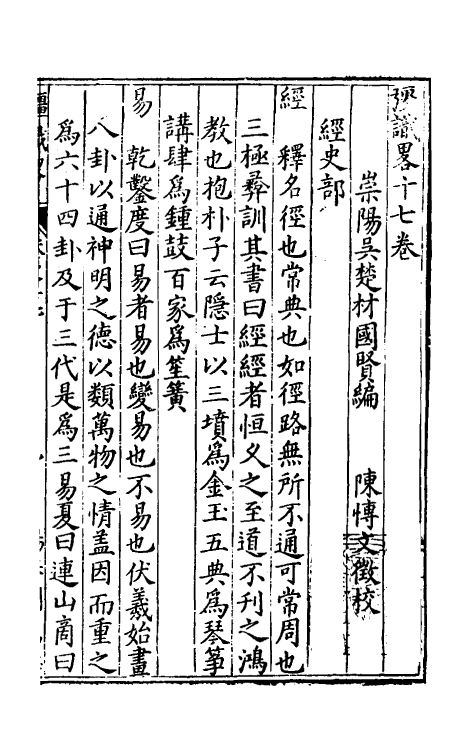 彊識畧十七卷
崇陽吳楚材國賢編 陳愽文徵校
經史部
經 釋名徑也常典也如徑路無所不通可常周也
三極彝訓其書曰經經者恒乆之至道不刊之鴻
教也抱朴子云隱士以三墳爲金玉五典爲琴箏
講肆爲鍾鼓百家爲笙簧
易 乾鑿度曰易者易也變易也不易也伏羲始畫
八卦以通神明之德以類萬物之情盖因而重之
爲六十四卦及于三代是爲三易夏曰連山商曰